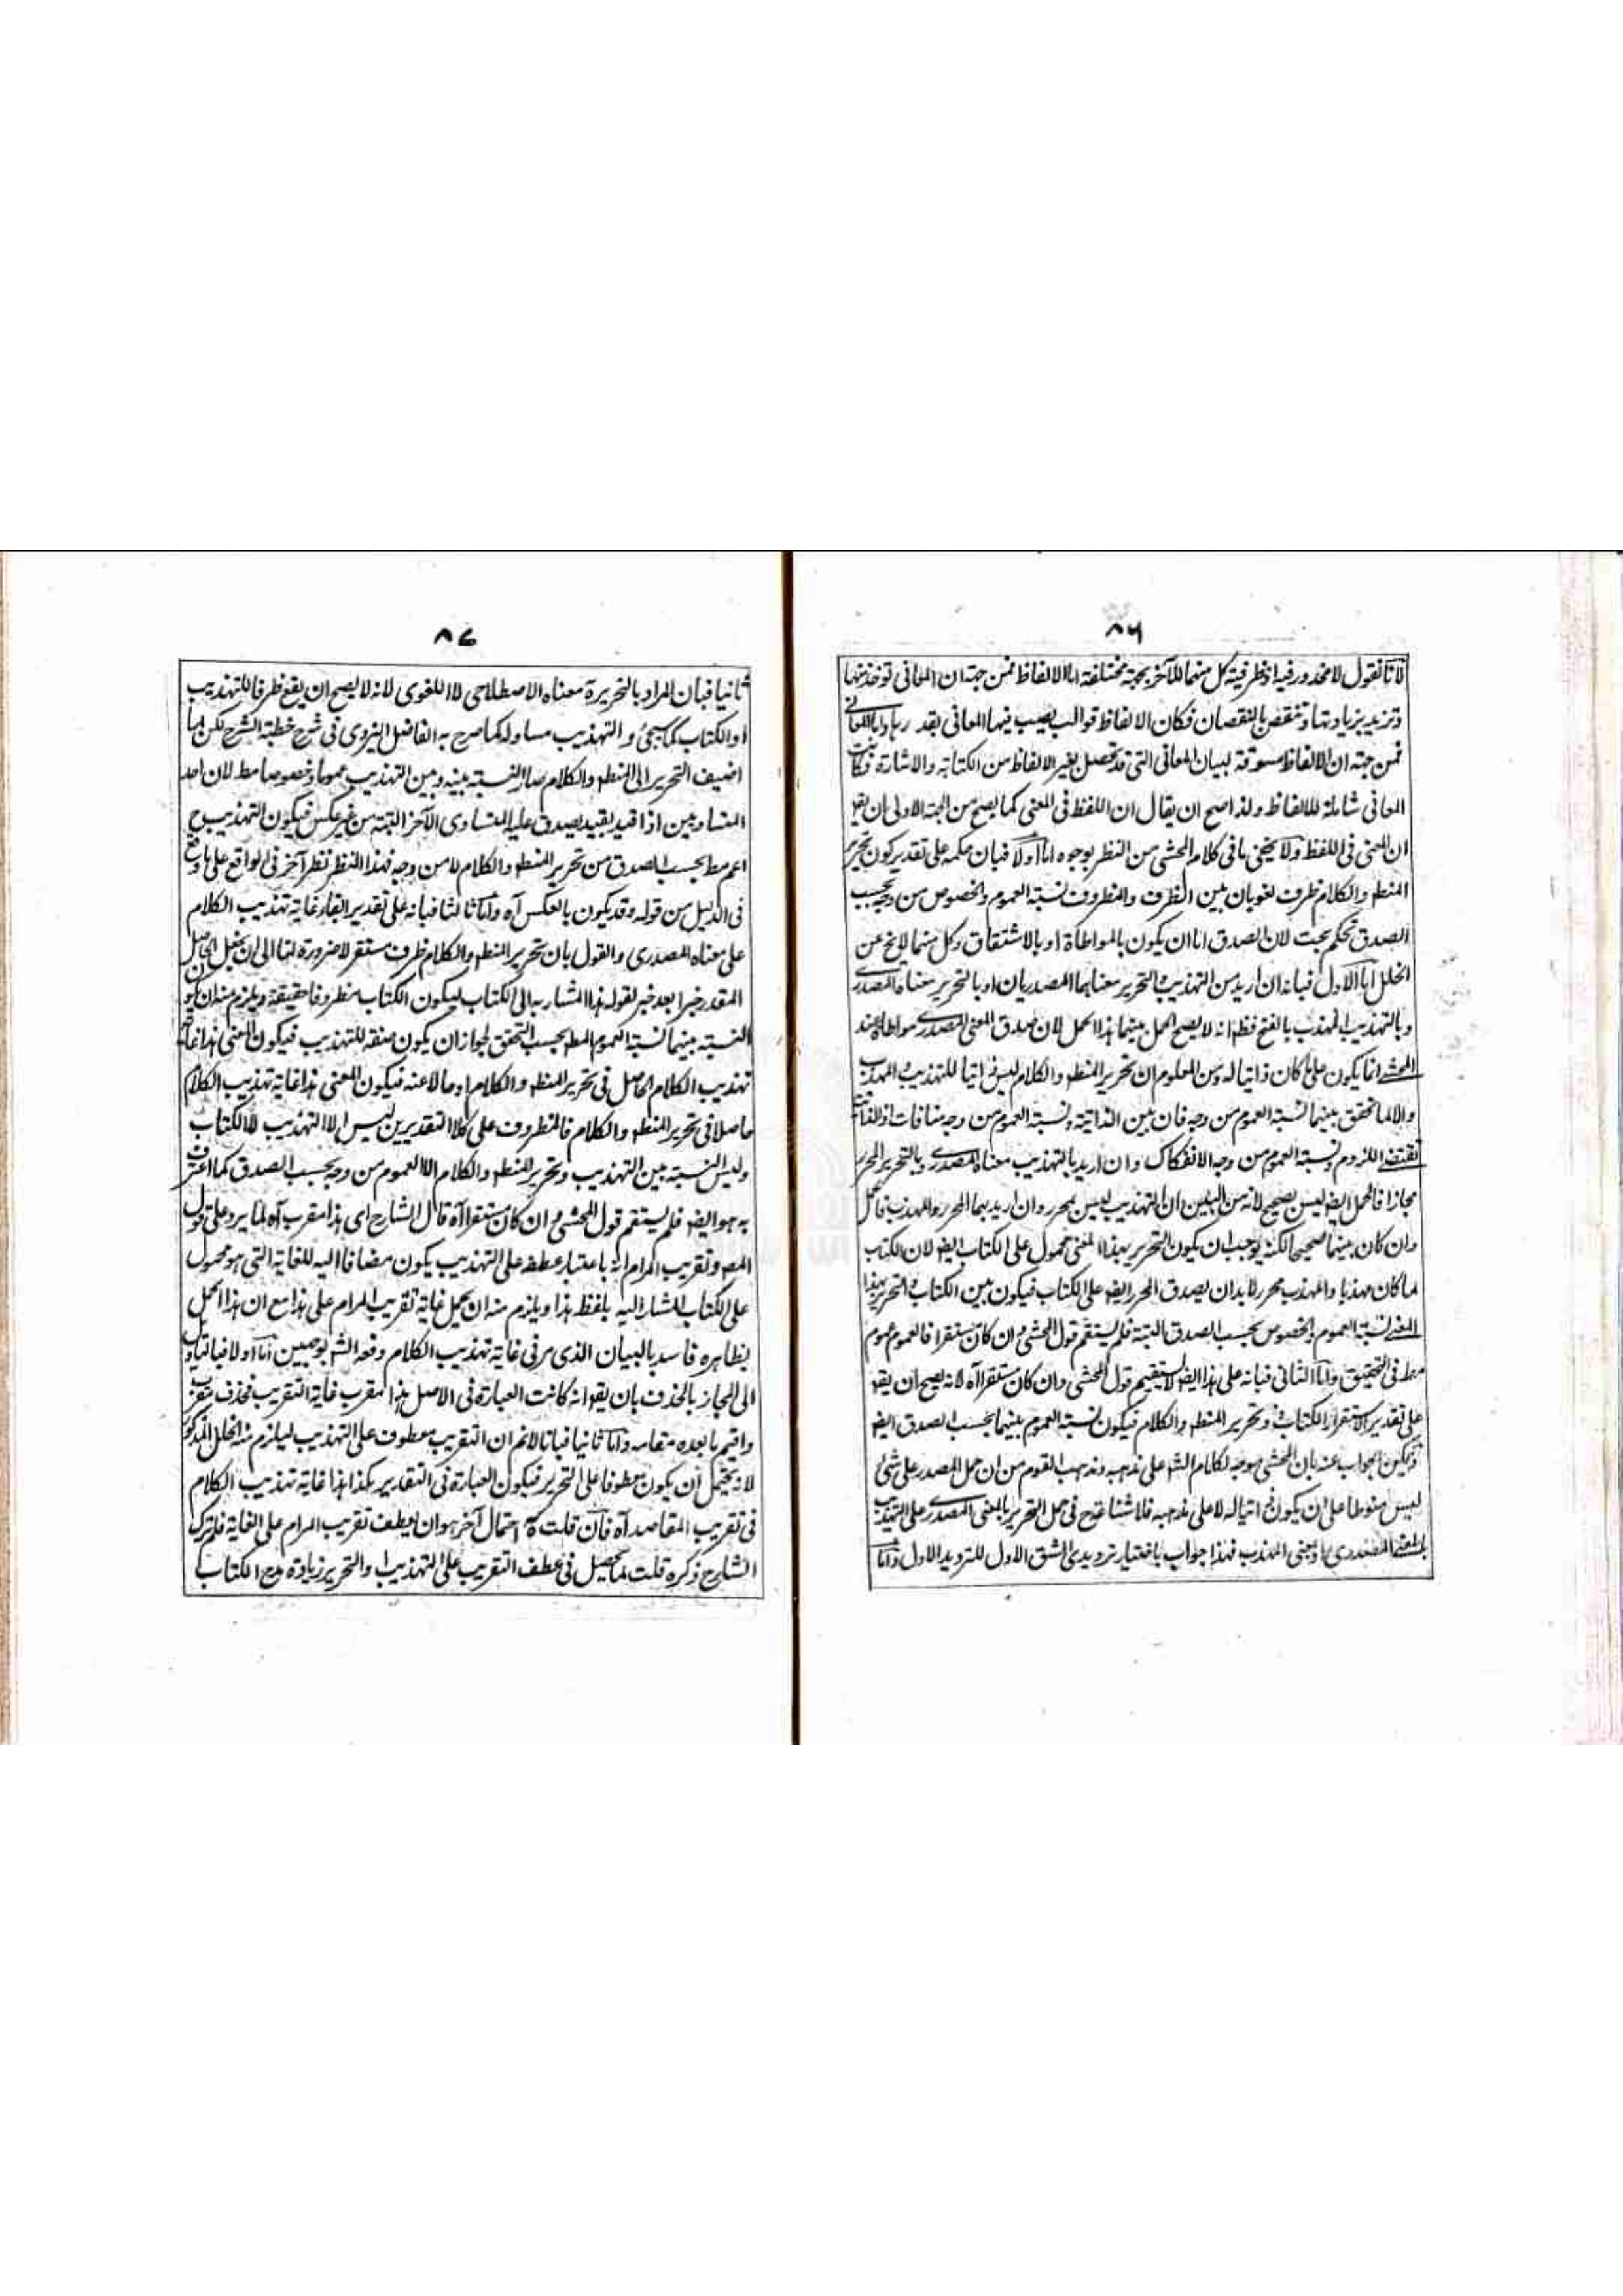 ٨٦
لانا نقول لا محذور فيه اذ ظرفية كل منهما للآخر بجهة مختلفة اما الالفاظ فمن جهة ان المعانى توخذ منها
وتزيد بزيادتها وتنقص بالنقصان فكان الالفاظ قوالب يصب فيها المعانى بقدرها واما المعانى
فمن جهة ان الالفاظ مسوقة لبيان المعانى التى قد تحصل بغير الالفاظ من الكتابة والاشارة فكانت
المعانى شاملة للالفاظ ولذا صح ان يقال ان اللفظ فى المعنى كما يصح من الجهة الاولى ان يقو
ان المعنى فى اللفظ ولا يخفى ما فى كلام المحشى من النظر بوجوه اما اولا فبان حكمه على تقدير كون تحرير
المنطه والكلام ظرف لغو بان بين الظرف والمظروف نسبة العموم والخصوص من وجه بحسب
الصدق تحكم بحت لان الصدق اما ان يكون بالمواطاة او بالاشتقاق وكل منهما لا يخ عن
الخلل اما الاول فبانه ان اريد من التهذيب والتحرير معناهما المصدريان او بالتحرير معناه المصدرى
وبالتهذيب المهذب بالفتح فظ انه لا يصح الحمل بينهما هذا الحمل لان صدق المعنى المصدرى مواطاة عند
المحشى انما يكون على ما كان ذاتيا له ومن المعلوم ان تحرير المنطه والكلام ليس ذاتيا للتهذيب والمهذب
والا لما تحقق بينهما نسبة العموم من وجه فان بين الذاتية ونسبة العموم من وجه منافات اذ الذاتية
تقتضى اللزوم ونسبة العموم من وجه الانفكاك وان اريد بالتهذيب معناه المصدرى وبالتحرير المحرر
مجازا فالحمل ايضه ليس بصحيح لانه من البين ان التهذيب ليس بمحرر وان اريد بهما المحرر والمهذب فالحمل
وان كان بينهما صحيحا لكنه يوجب ان يكون التحرير بهذا المعنى محمول على الكتاب ايضه لان الكتاب
لما كان مهذبا والمهذب محرر لابد ان يصدق المحرر ايضه على الكتاب فيكون بين الكتاب والتحرير بهذا
المعنى نسبة العموم والخصوص بحسب الصدق البتة فلم يستقم قول المحشى وان كان مستقرا فالعموم عموم
مط فى التحقيق واما الثانى فبانه على هذا ايضه لا يستقيم قول المحشى وان كان مستقرا آه لانه يصح ان يقو
على تقدير الاستقرار الكتاب ذو تحرير المنطه والكلام فيكون نسبة العموم بينهما بحسب الصدق ايضه
ويمكن الجواب عنه بان المحشى موجه لكلام الشه على مذهبه ومذهب القوم من ان حمل المصدر على شئ
ليس منوطا على ان يكون ذاتيا له لا على مذهبه فلا شناعة ح فى حمل التحرير بالمعنى المصدرى على التهذيب
بالمعنى المصدرى او بمعنى المهذب فهذا جواب باختيار ترديدى الشق الاول للترديد الاول واما
٨٧
ثانيا فبان المراد بالتحرير معناه الاصطلاحى لا اللغوى لانه لا يصح ان يقع ظرفا للتهذيب
او الكتاب كما سيجئ والتهذيب مساو له كما صرح به الفاضل اليزدى فى شرح خطبة الشرح لكن لما
اضيف التحرير الى المنطه والكلام صار النسبة بينه وبين التهذيب عموما وخصوصا مط لان احد
المتساويين اذا قيد بقيد يصدق عليه المتساوى الآخر البتة من غير عكس فيكون التهذيب ح
اعم مط بحسب الصدق من تحرير المنطه والكلام لا من وجه فهذا النظر نظر آخر فى الواقع على ما وقع
فى الدليل من قوله وقد يكون بالعكس آه واما ثالثا فبانه على تقدير ابقاء غاية تهذيب الكلام
على معناه المصدرى والقول بان تحرير المنطه والكلام ظرف مستقر لا ضرورة لنا الى ان نجعل الحاصل
المقدر خبرا بعد خبر لقوله هذا المشار به الى الكتاب ليكون الكتاب مظروفا حقيقة ويلزم منه ان يكون
النسبة بينهما نسبة العموم المط بحسب التحقق لجواز ان يكون صفة للتهذيب فيكون المعنى هذا غاية
تهذيب الكلام الحاصل فى تحرير المنطه والكلام او حالا عنه فيكون المعنى هذا غاية تهذيب الكلام
حاصلا فى تحرير المنطه والكلام فالمظروف على كلا التقديرين ليس الا التهذيب لا الكتاب
وليس النسبة بين التهذيب وتحرير المنطه والكلام الا العموم من وجه بحسب الصدق كما اعترف
به هو ايضه فلم يستقم قول المحشى وان كان مستقرا آه قال الشارح اى هذا مقرب آه لما يرد على قول
المص وتقريب المرام انه باعتبار عطفه على التهذيب يكون مضافا اليه للغاية التى هو محمول
على الكتاب المشار اليه بلفظ هذا ويلزم منه ان يحمل غاية تقريب المرام على هذا مع ان هذا الحمل
بظاهره فاسد بالبيان الذى مر فى غاية تهذيب الكلام دفعه الشه بوجهين اما اولا فبالتاويل
الى المجاز بالحذف بان يقو انه كانت العبارة فى الاصل هذا مقرب غاية التقريب فحذف مقرب
واقيم ما بعده مقامه واما ثانيا فبانا لا نم ان التقريب معطوف على التهذيب ليلزم منه الخلل المذكور
لانه يحتمل ان يكون معطوفا على التحرير فيكون العبارة فى التقدير هكذا هذا غاية تهذيب الكلام
فى تقريب المقاصد آه فان قلت ثمه احتمال آخر هو ان يعطف تقريب المرام على الغاية فلم ترك
الشارح ذكره قلت لما يحصل فى عطف التقريب على التهذيب او التحرير زيادة مدح الكتاب